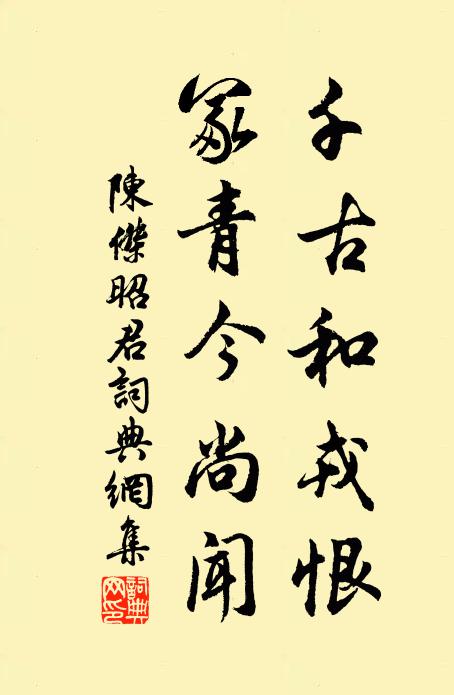 千古和戎恨
冢青今尚聞
陳傑昭君詞典網集
詞典網印